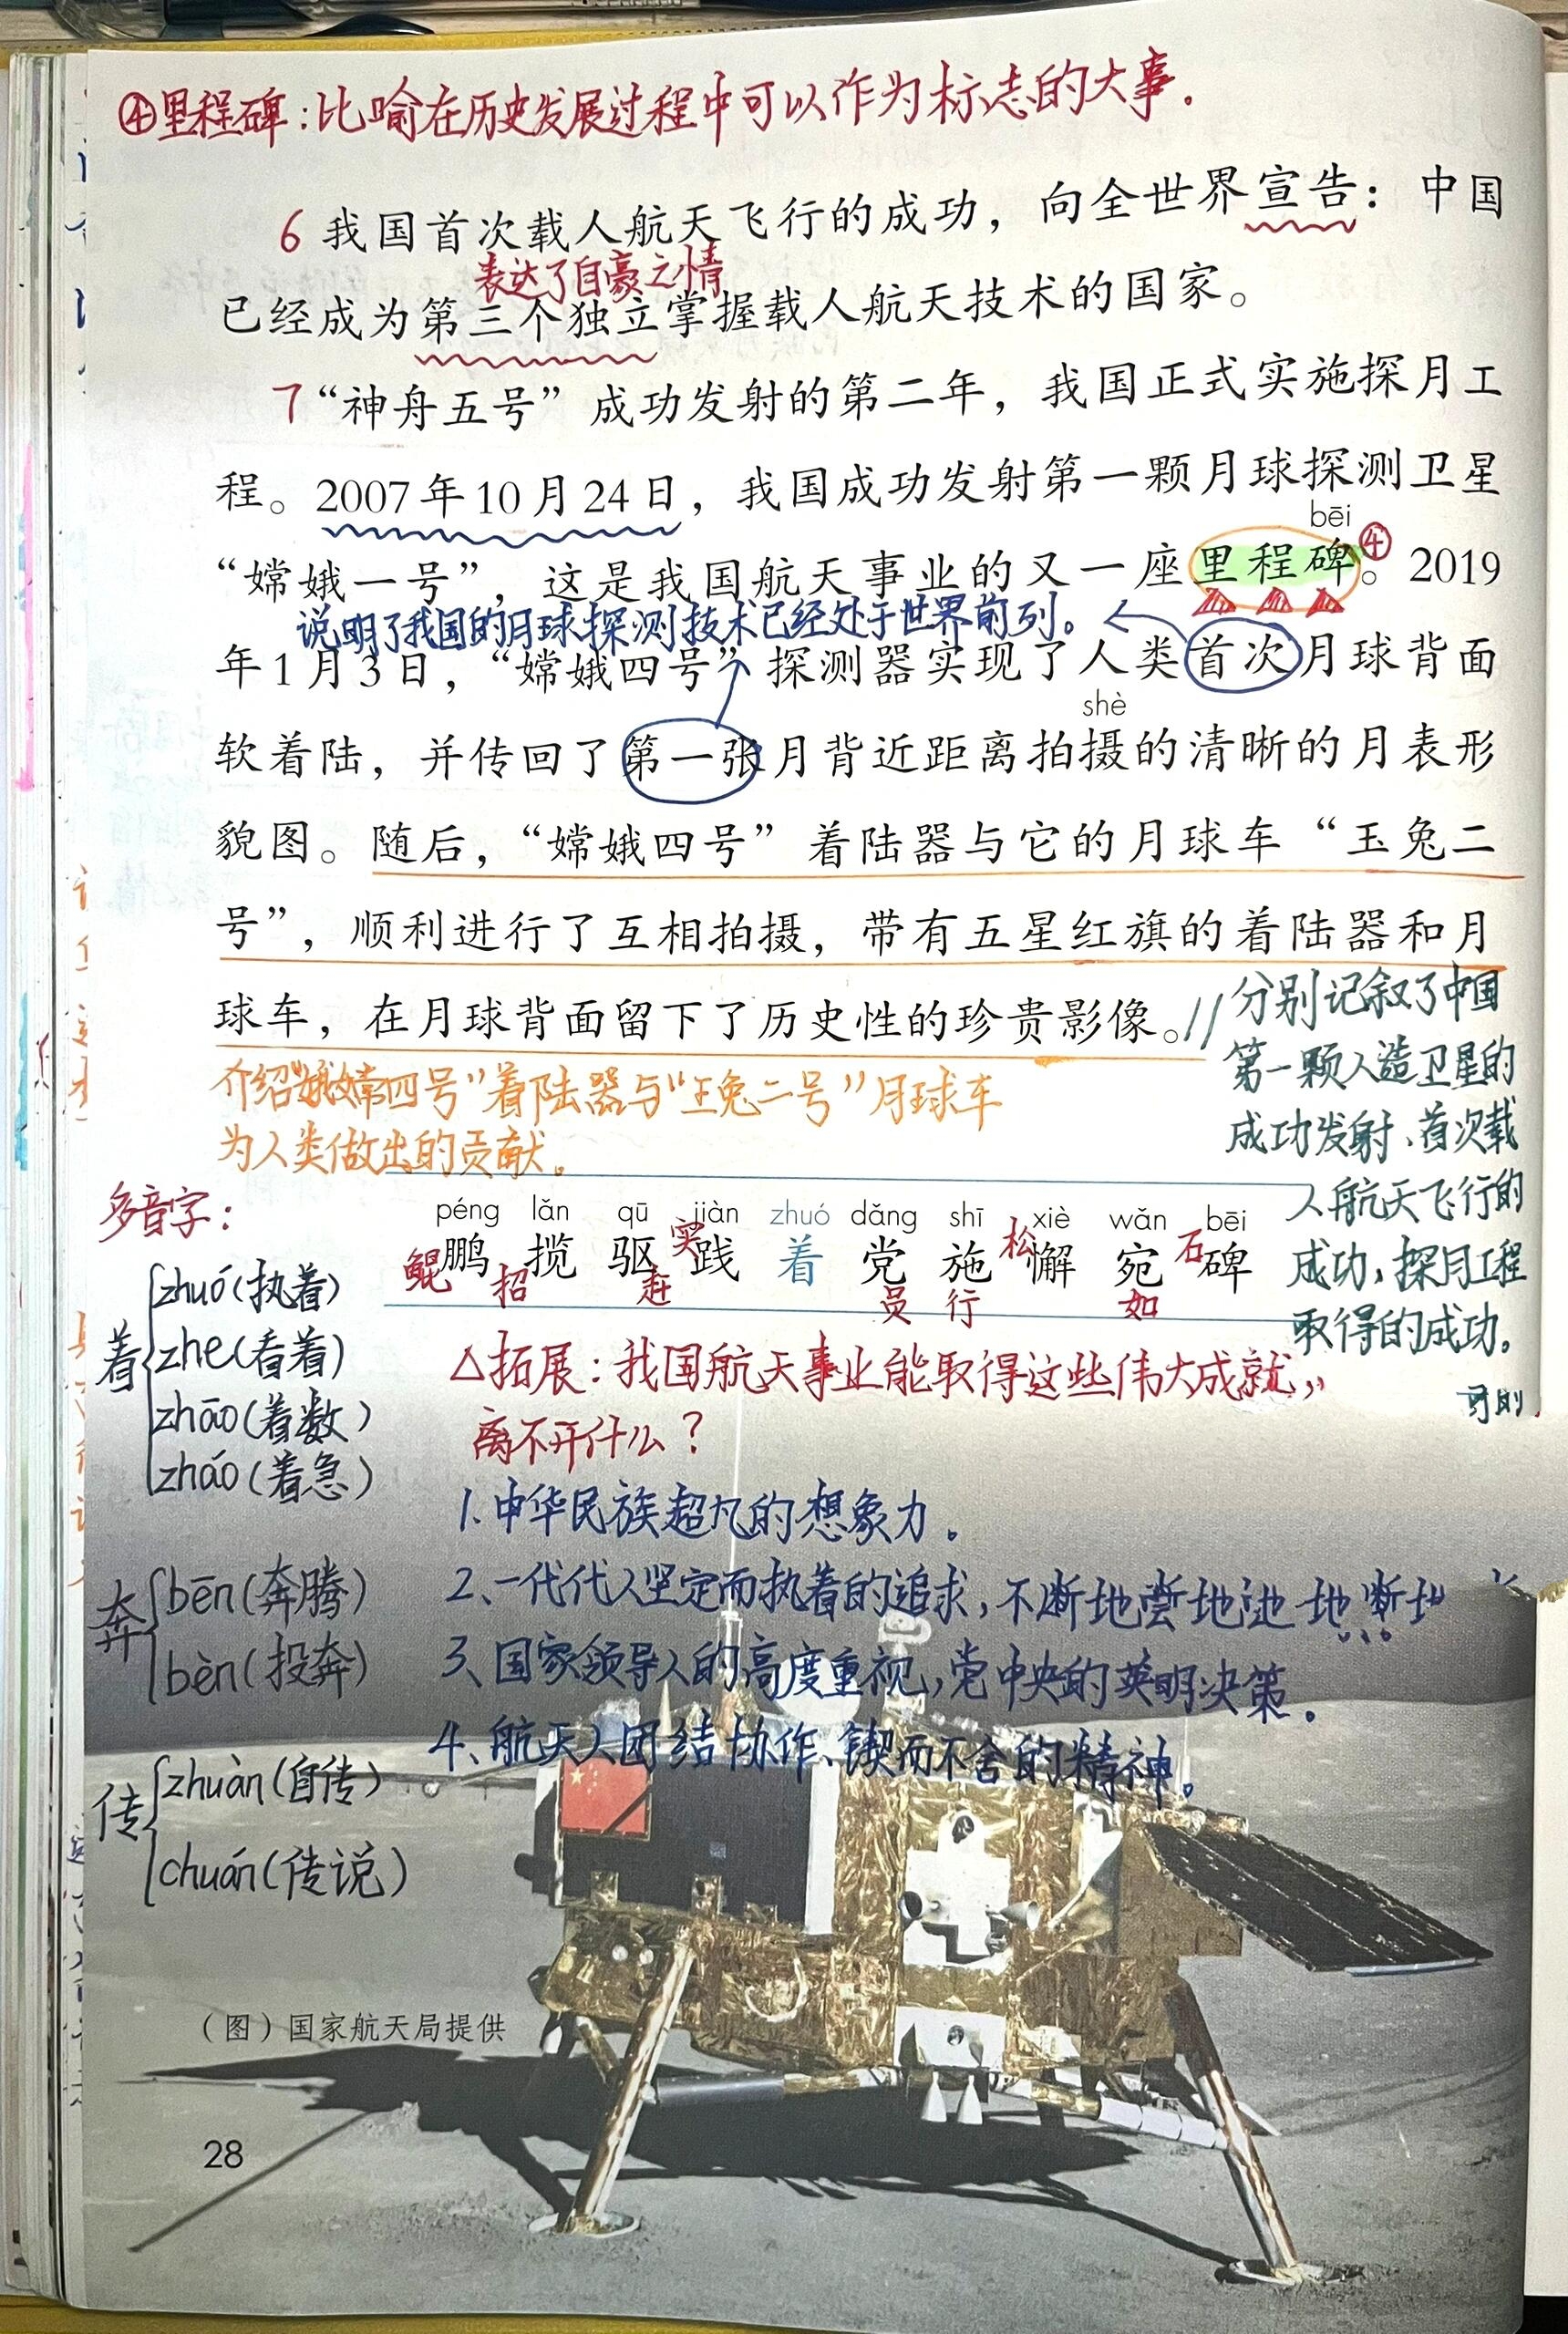 ④里程碑：比喻在历史发展过程中可以作为标志的大事.
6 我国首次载人航天飞行的成功，向全世界宣告：中国
表达了自豪之情
已经成为第三个独立掌握载人航天技术的国家。
7 “神舟五号”成功发射的第二年，我国正式实施探月工
程。2007年10月24日，我国成功发射第一颗月球探测卫星
bēi
“嫦娥一号”，这是我国航天事业的又一座里程碑④。2019
说明了我国的月球探测技术已经处于世界前列。
年1月3日，“嫦娥四号”探测器实现了人类首次月球背面
shè
软着陆，并传回了第一张月背近距离拍摄的清晰的月表形
貌图。随后，“嫦娥四号”着陆器与它的月球车“玉兔二
号”，顺利进行了互相拍摄，带有五星红旗的着陆器和月
球车，在月球背面留下了历史性的珍贵影像。//
分别记叙了中国
第一颗人造卫星的
成功发射、首次载
人航天飞行的
成功，探月工程
取得的成功。
介绍“嫦娥四号”着陆器与“玉兔二号”月球车
为人类做出的贡献。
péng lǎn qū jiàn zhuó dǎng shī xiè wǎn bēi
鲲鹏 揽 驱 实践 着 党 施 松懈 宛 石碑
招 赶 员 行 如
多音字：
着
zhuó(执着)
zhe(看着)
zhāo(着数)
zháo(着急)
奔
bēn(奔腾)
bèn(投奔)
传
zhuàn(自传)
chuán(传说)
△拓展：我国航天事业能取得这些伟大成就，
离不开什么？
1.中华民族超凡的想象力。
2、一代代人坚定而执着的追求，不断地尝
3、国家领导人的高度重视，党中央的英明决策。
4、航天人团结协作、锲而不舍的精神。
（图）国家航天局提供
28